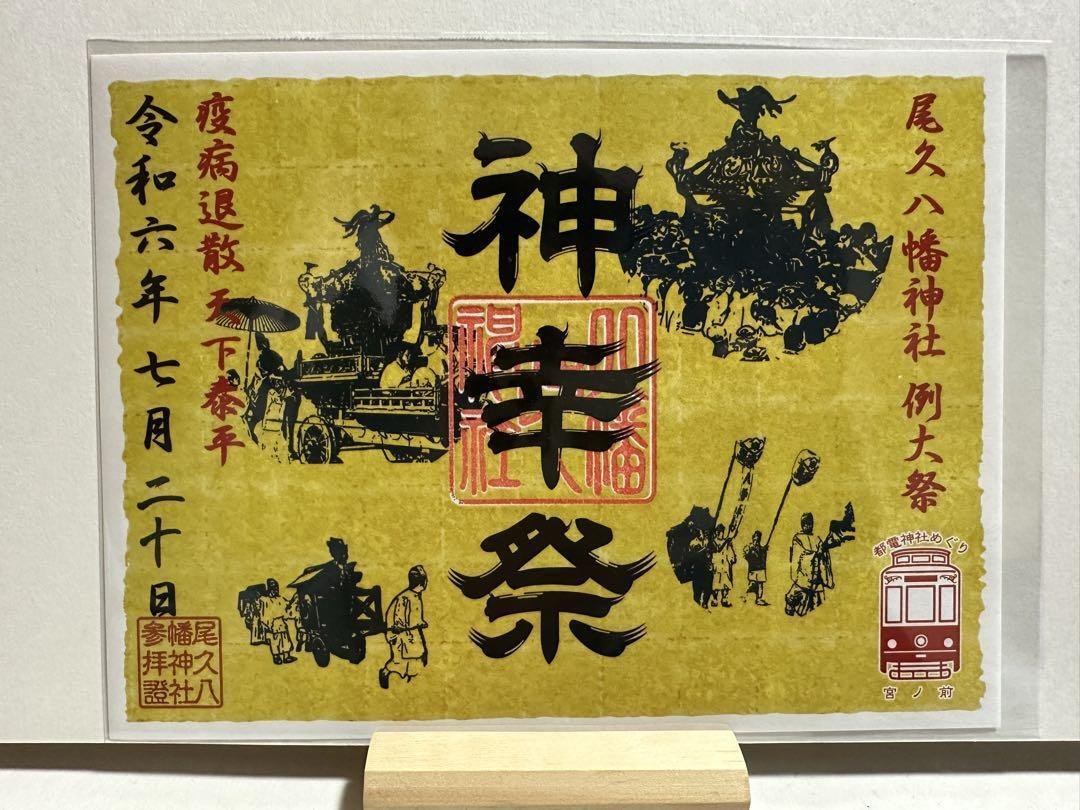 尾久八幡神社 例大祭
神幸祭
八幡
神社
疫病退散 天下泰平
令和六年 七月 二十日
尾久八
幡神社
参拝證
都電神社めぐり
宮ノ前